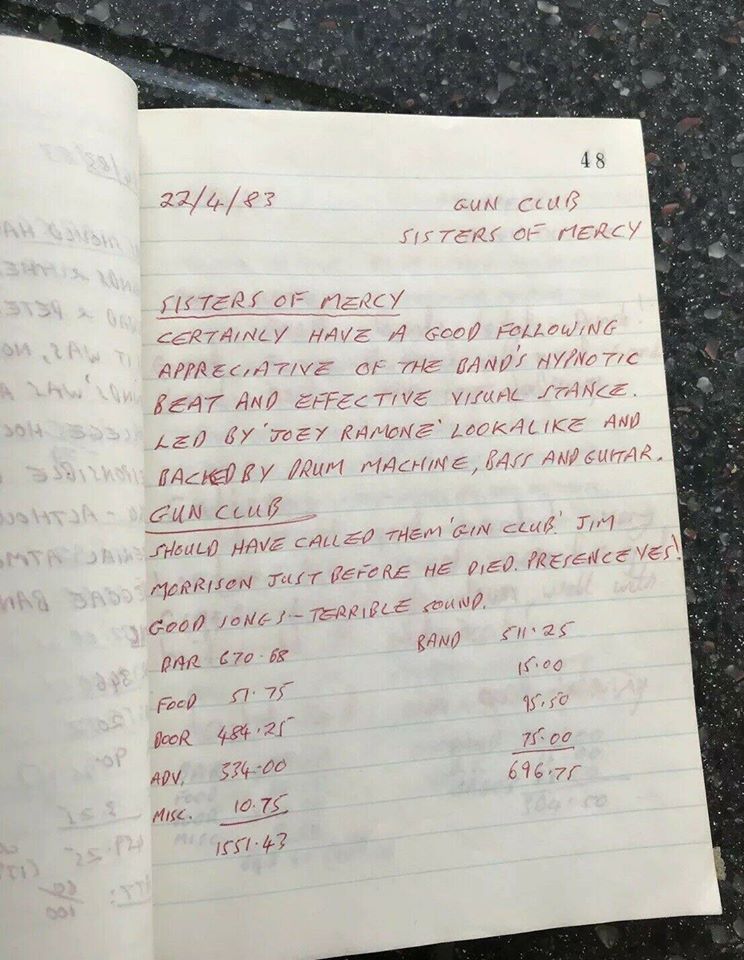 48
22/4/83 GUN CLUB
SISTERS OF MERCY
SISTERS OF MERCY
CERTAINLY HAVE A GOOD FOLLOWING
APPRECIATIVE OF THE BAND'S HYPNOTIC
BEAT AND EFFECTIVE VISUAL STANCE.
LED BY 'JOEY RAMONE' LOOKALIKE AND
BACKED BY DRUM MACHINE, BASS AND GUITAR.
GUN CLUB
SHOULD HAVE CALLED THEM 'GIN CLUB'. JIM
MORRISON JUST BEFORE HE DIED. PRESENCE YES!
GOOD SONGS - TERRIBLE SOUND.
BAR 670.68 BAND 511.25
15.00
FOOD 51.75 95.50
DOOR 484.25 75.00
ADV. 334.00 696.75
MISC. 10.75
1551.43